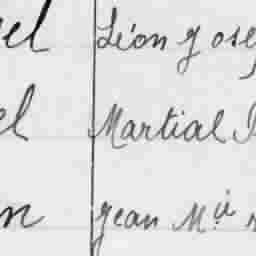 el Léon Jose
el Martial
n Jean Mie